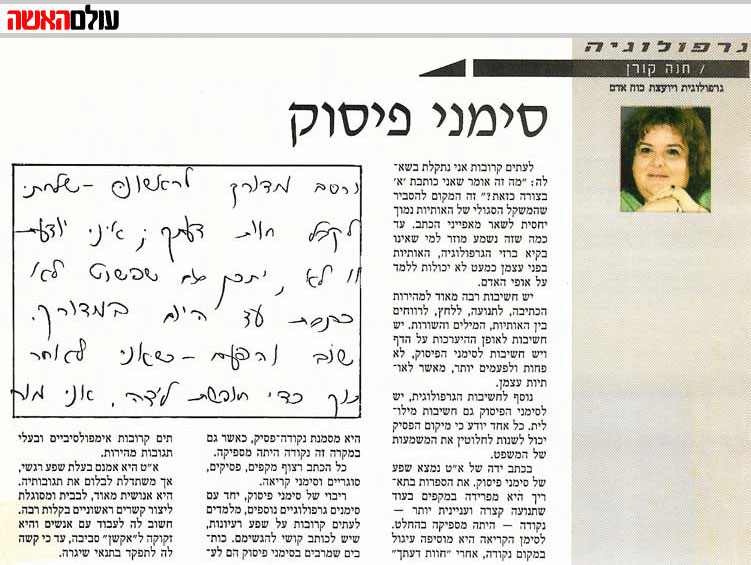 עולם האשה
גרפולוגיה
/ חנה קורן
גרפולוגית ויועצת כוח אדם
סימני פיסוק
לעתים קרובות אני נתקלת בשא־
לה: "מה זה אומר שאני כותבת 'א'
בצורה כזאת?" זה המקום להסביר
שהמשקל הסגולי של האותיות נמוך
יחסית לשאר מאפייני הכתב. עד
כמה שזה נשמע מוזר למי שאינו
בקיא ברזי הגרפולוגיה, האותיות
בפני עצמן כמעט לא יכולות ללמד
על אופי האדם.
יש חשיבות רבה מאוד למהירות
הכתיבה, לתנועה, ללחץ, לרווחים
בין האותיות, המילים והשורות. יש
חשיבות לאופן ההיערכות על הדף
ויש חשיבות לסימני הפיסוק, לא
פחות ולפעמים יותר, מאשר לאו־
תיות עצמן.
נוסף לחשיבות הגרפולוגית, יש
לסימני הפיסוק גם חשיבות מילו־
לית. כל אחד יודע כי מיקום הפסיק
יכול לשנות לחלוטין את המשמעות
של המשפט.
בכתב ידה של א"ט נמצא שפע
של סימני פיסוק. את הספרות בתא־
ריך היא מפרידה במקפים בעוד
שתנועה קצרה ועניינית יותר —
נקודה — היתה מספיקה בהחלט.
לסימן הקריאה היא מוסיפה עיגול
במקום נקודה, אחרי "חוות דעתך"
מדורך לראשונה - שלחתי
לקבל חוות דעתך ; איני יודעת
או לא, יתכן שפשוט לא
עד היום במדורך.
שוב והפעם - כשאני לאחר
כדי חופשת לידה, אני
היא מסמנת נקודה־פסיק, כאשר גם
במקרה זה נקודה היתה מספיקה.
כל הכתב רצוף מקפים, פסיקים,
סוגריים וסימני קריאה.
ריבוי של סימני פיסוק, יחד עם
סימנים גרפולוגיים נוספים, מלמדים
לעתים קרובות על שפע רעיונות,
שיש לכותב קושי להגשימם. כות־
בים שמרבים בסימני פיסוק הם לע־
תים קרובות אימפולסיביים ובעלי
תגובות מהירות.
א"ט היא אמנם בעלת שפע רגשי,
אך משתדלת לבלום את תגובותיה.
היא אנושית מאוד, לבבית ומסוגלת
ליצור קשרים ראשוניים בקלות רבה.
חשוב לה לעבוד עם אנשים והיא
זקוקה ל"אקשן" סביבה, עד כי קשה
לה לתפקד בתנאי שיגרה.